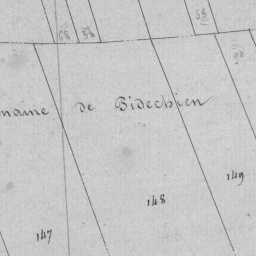 58
maine de Bidechien
149
148
147